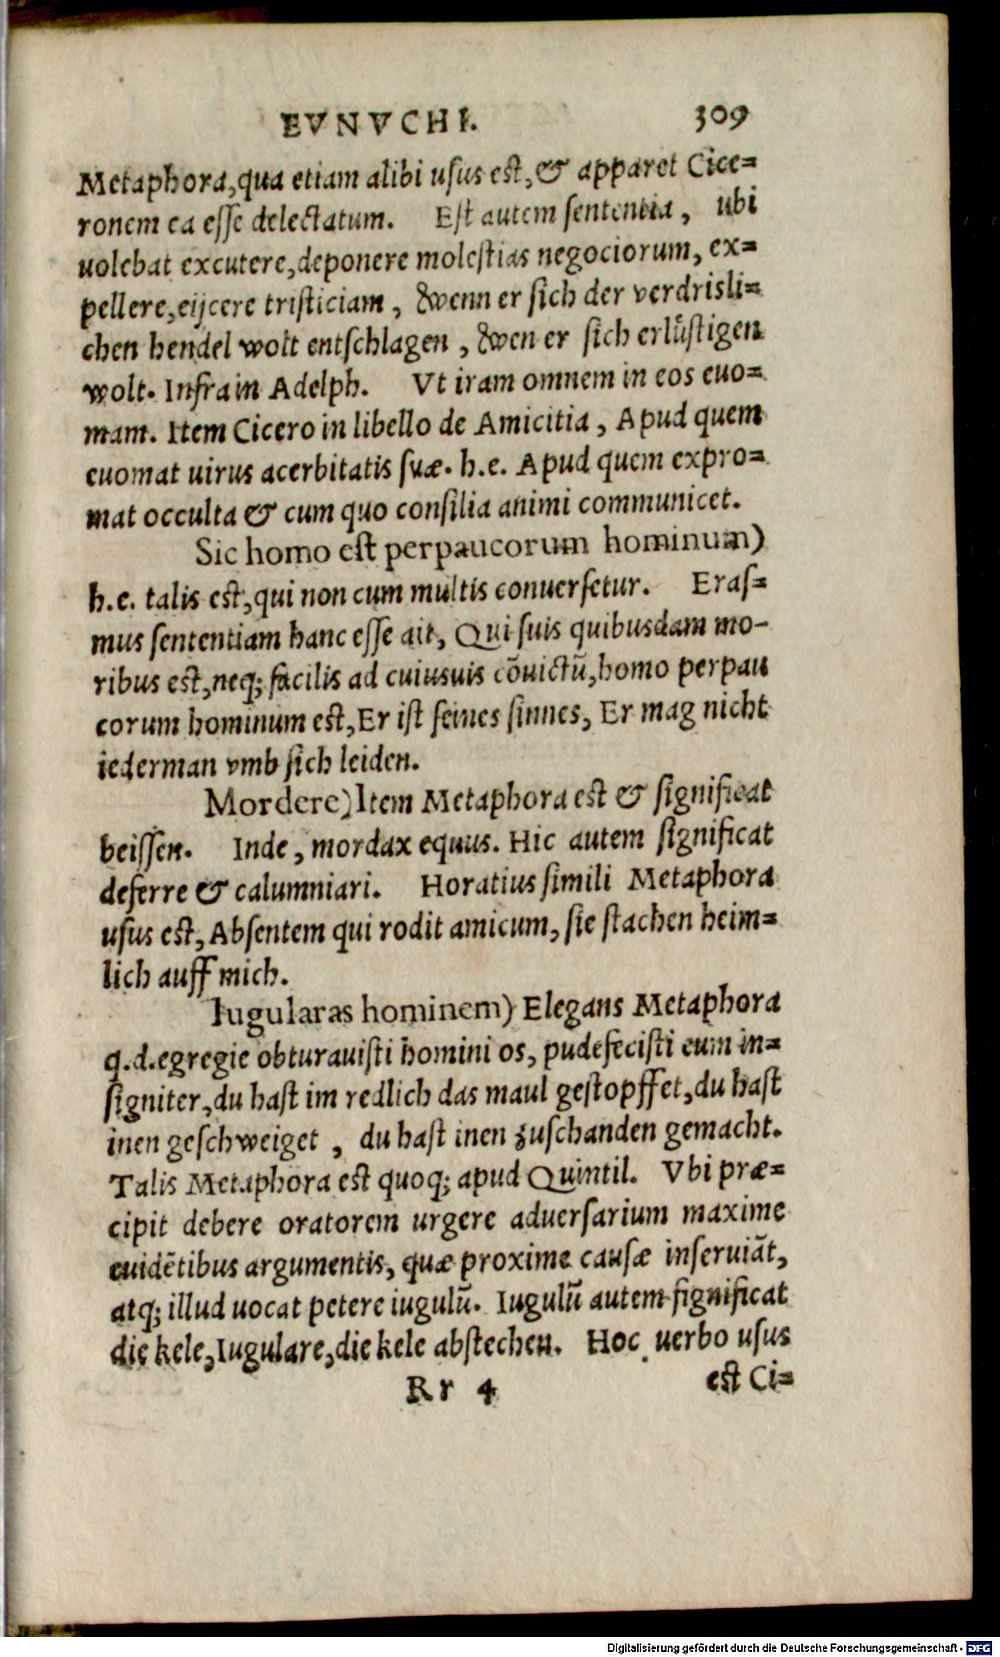 EVNVCHI. 309
Metaphora, qua etiam alibi usus est, & apparet Cice=
ronem ea esse delectatum. Est autem sententia, ubi
uolebat excutere, deponere molestias negociorum, ex=
pellere, eijcere tristiciam, wenn er sich der verdrisli=
chen hendel wolt entschlagen, wen er sich erlüstigen
wolt. Infra in Adelph. Vt iram omnem in eos euo=
mam. Item Cicero in libello de Amicitia, Apud quem
euomat uirus acerbitatis suæ. h.e. Apud quem expro=
mat occulta & cum quo consilia animi communicet.
Sic homo est perpaucorum hominum)
h.e. talis est, qui non cum multis conuersetur. Eras=
mus sententiam hanc esse ait, Qui suis quibusdam mo-
ribus est, neq; facilis ad cuiusuis cōuictū, homo perpau
corum hominum est, Er ist seines sinnes, Er mag nicht
iederman vmb sich leiden.
Mordere) Item Metaphora est & significat
beissen. Inde, mordax equus. Hic autem significat
deferre & calumniari. Horatius simili Metaphora
usus est, Absentem qui rodit amicum, sie stachen heim=
lich auff mich.
Iugularas hominem) Elegans Metaphora
q.d. egregie obturauisti homini os, pudefecisti eum in=
signiter, du hast im redlich das maul gestopffet, du hast
inen geschweiget, du hast inen zuschanden gemacht.
Talis Metaphora est quoq; apud Quintil. Vbi præ=
cipit debere oratorem urgere aduersarium maxime
euidētibus argumentis, quæ proxime causæ inseruiāt,
atq; illud uocat petere iugulū. Iugulū autem significat
die kele, Iugulare, die kele abstechen. Hoc uerbo usus
Rr 4 est Ci=
Digitalisierung gefördert durch die Deutsche Forschungsgemeinschaft - DFG